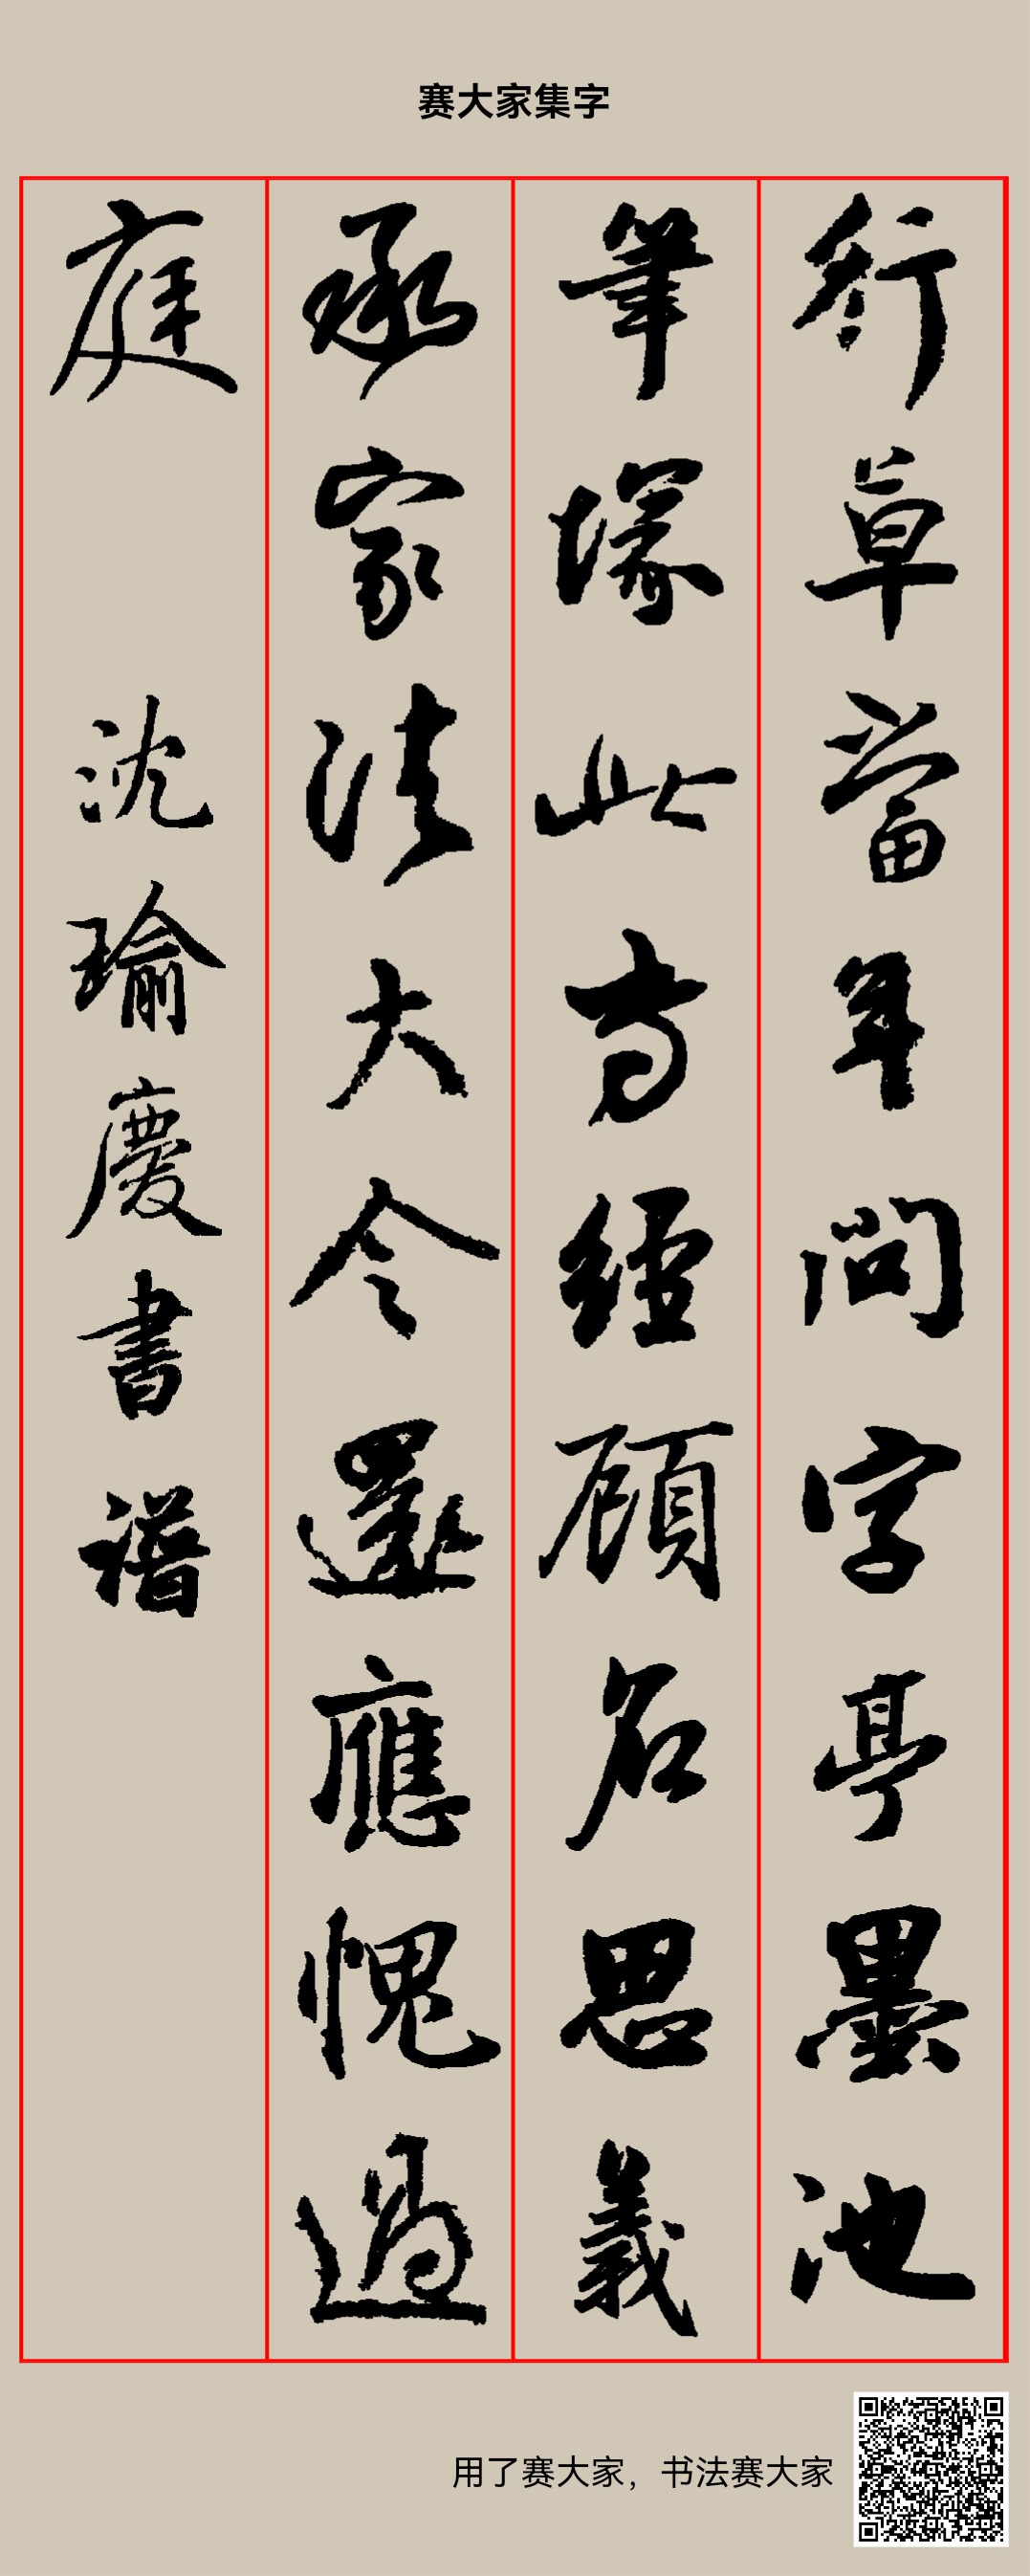 赛大家集字
行草當年問字亭墨池
筆塚此寺經顧名思義
承家法大令還應愧過
庭
沈瑜慶書譜
用了赛大家，书法赛大家